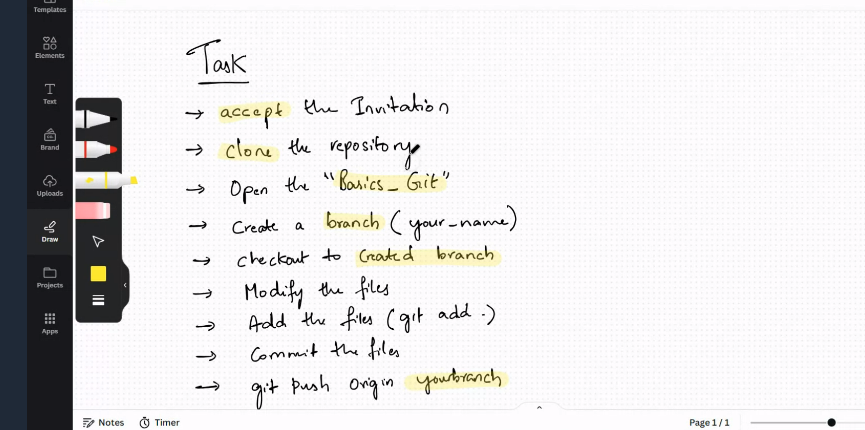 Templates
Elements
Text
Brand
Uploads
Draw
Projects
Apps
Task
→ accept the Invitation
→ clone the repository
→ Open the "Basics_Git"
→ Create a branch (your_name)
→ checkout to created branch
→ Modify the files
→ Add the files (git add .)
→ Commit the files
→ git push origin yourbranch
Notes
Timer
Page 1 / 1